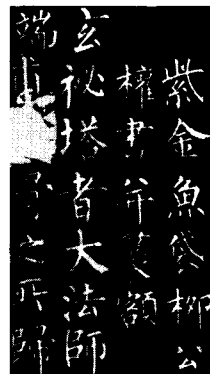 紫金魚袋柳公
權書并篆額
玄祕塔者大法師
端甫骨之所歸